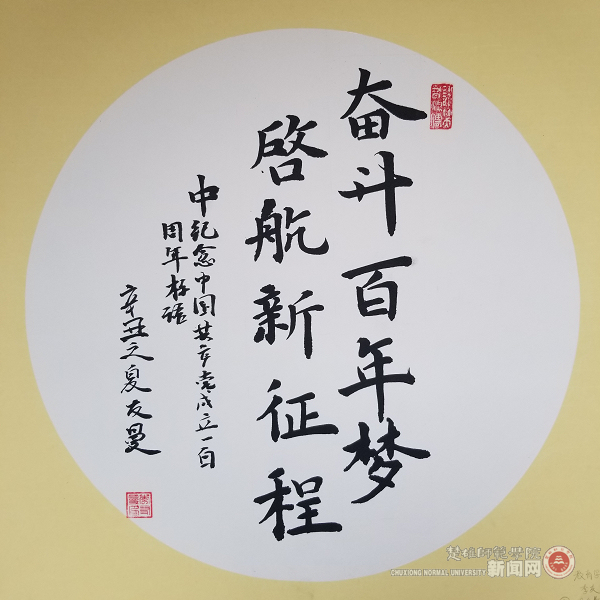 奋斗百年梦
啓航新征程
中纪念中国共产党成立一百
周年标语
辛丑之夏友曼
楚雄师范学院
CHUXIONG NORMAL UNIVERSITY
新闻网